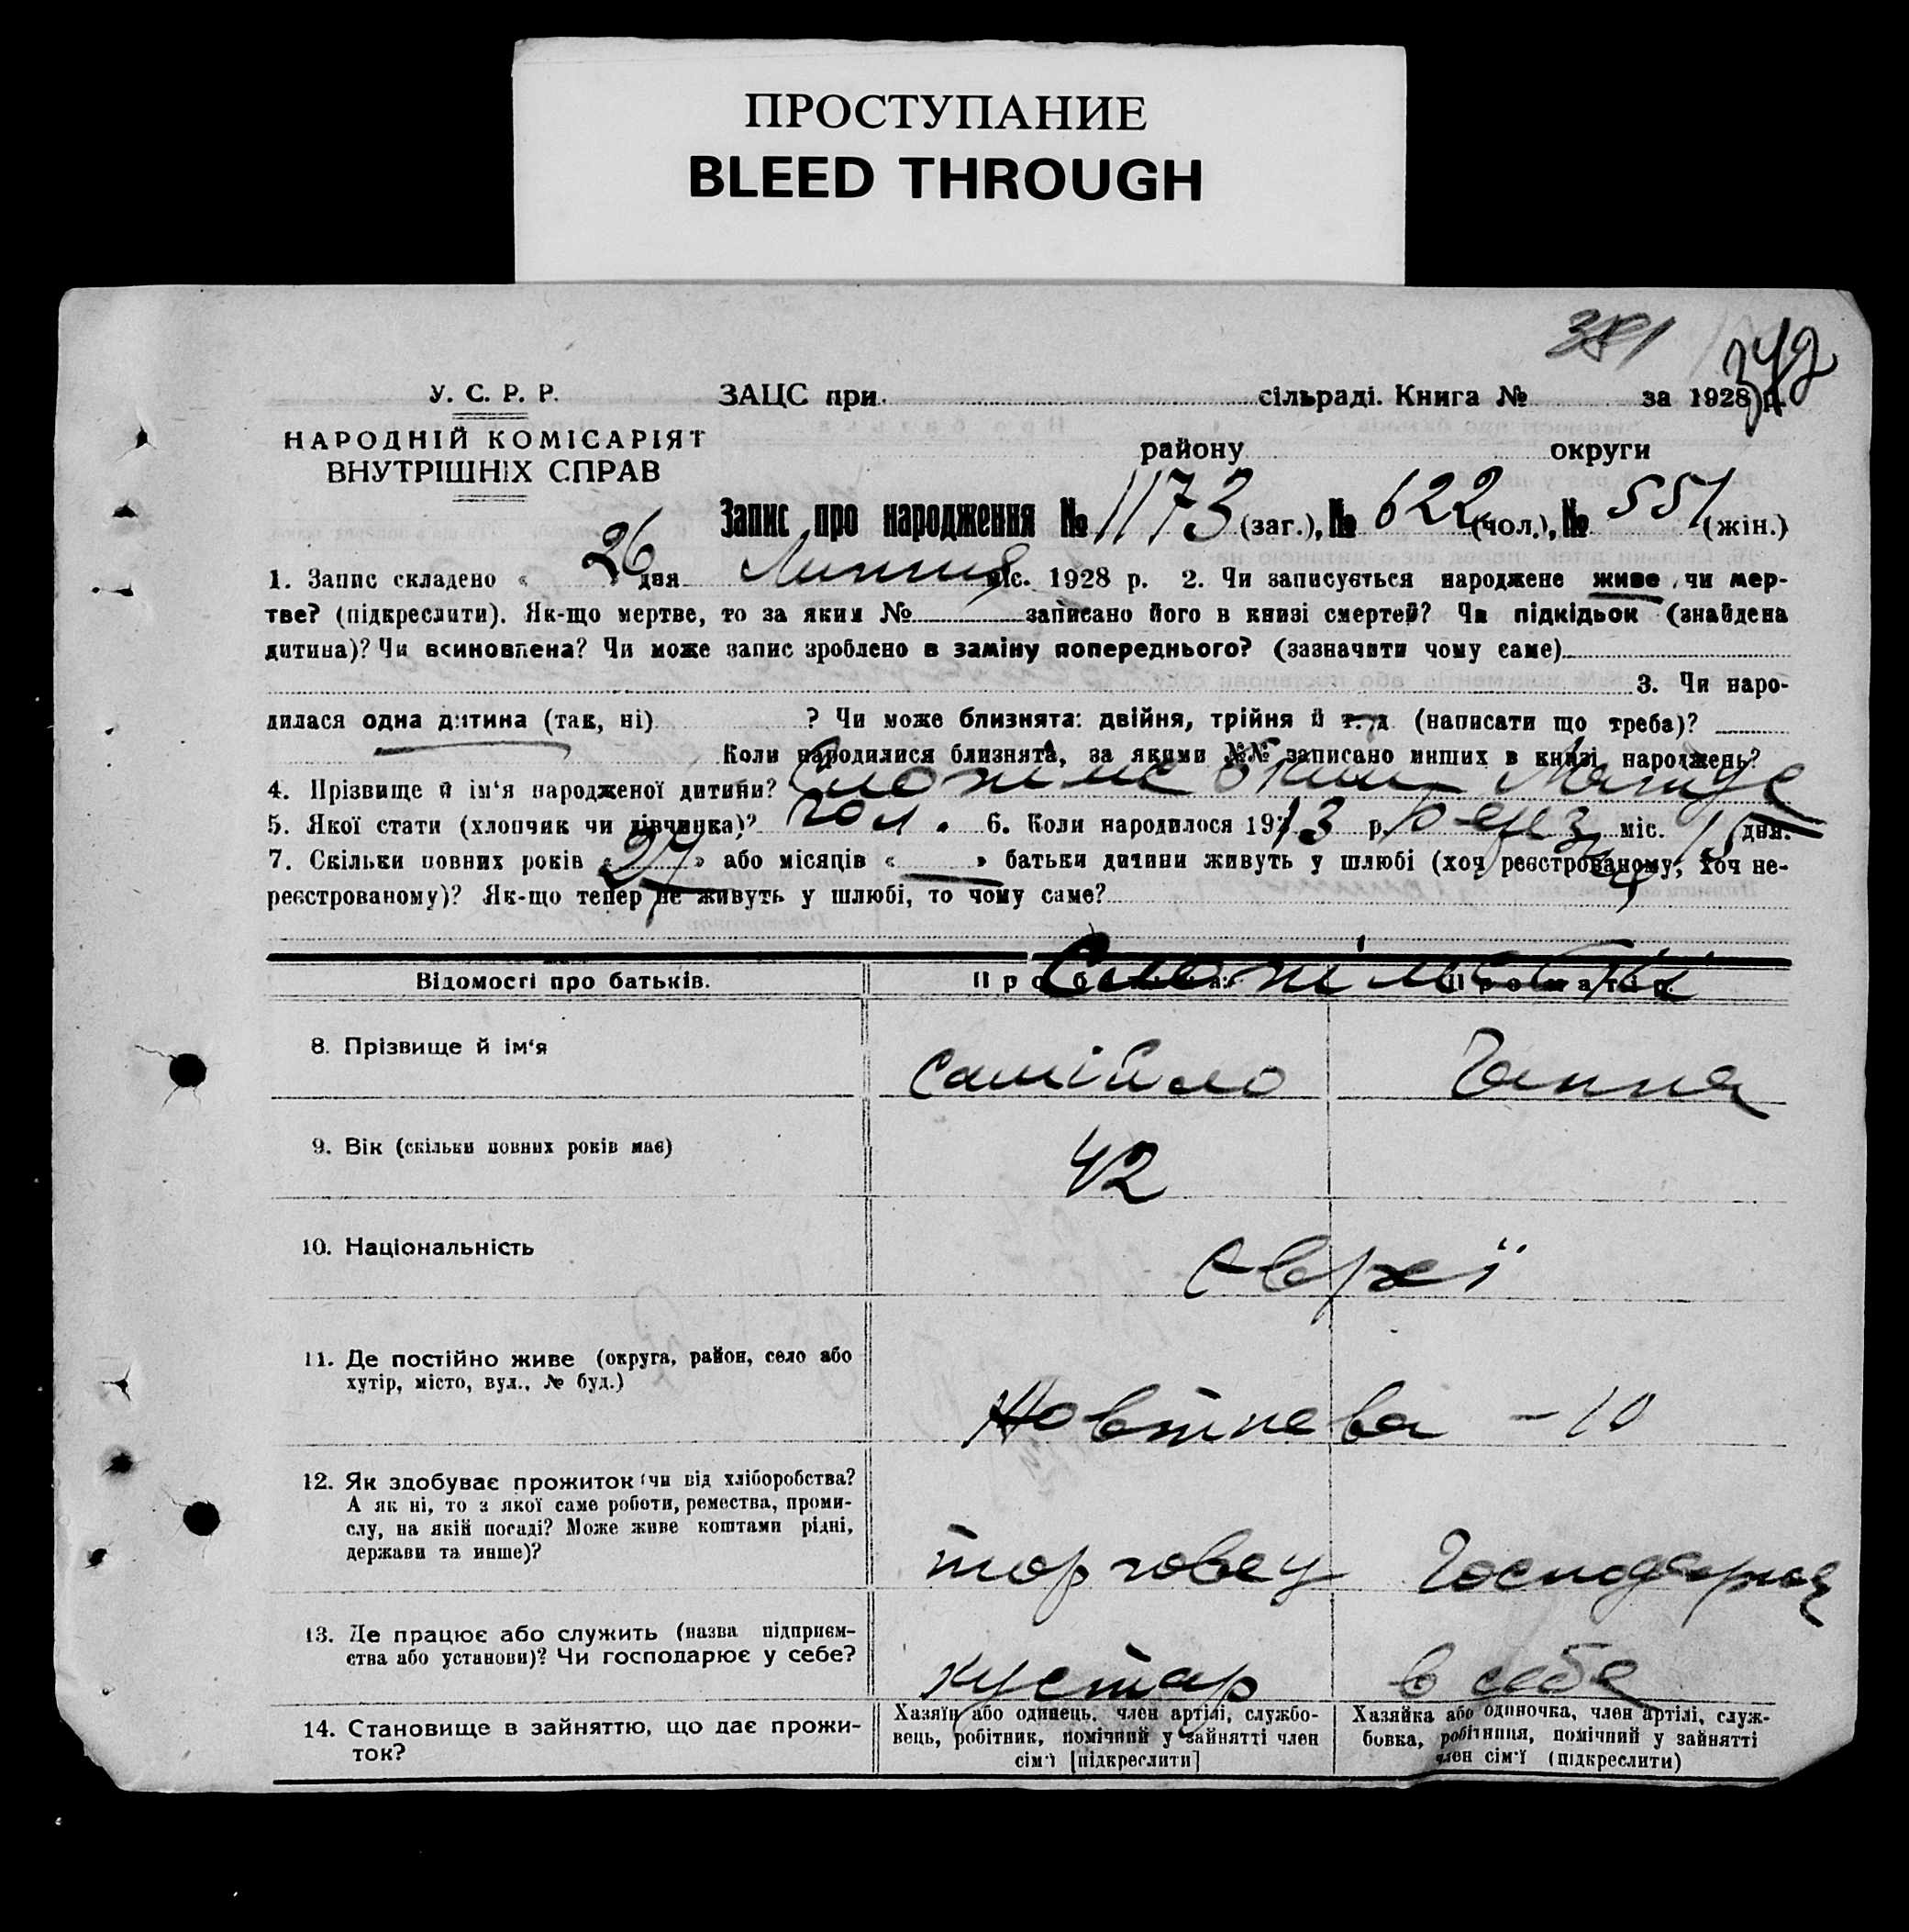 ПРОСТУПАНИЕ
BLEED THROUGH
381
342
У. С. Р. Р.
ЗАЦС при сільраді. Книга № за 1928 р.
НАРОДНІЙ КОМІСАРІЯТ
ВНУТРІШНІХ СПРАВ
району округи
Запис про народження № 1173 (заг.), № 622 (чол.), № 551 (жін.)
1. Запис складено « 26 дня Липня міс. 1928 р. 2. Чи записується народжене живе, чи мер-
тве? (підкреслити). Як-що мертве, то за яким № записано його в книзі смертей? Чи підкідьок (знайдена
дитина)? Чи всиновлена? Чи може запис зроблено в заміну попереднього? (зазначити чому саме)
3. Чи наро-
дилася одна дитина (так, ні) ? Чи може близнята: двійня, трійня й т. д. (написати що треба)?
Коли народилися близнята, за якими №№ записано инших в книзі народжень?
4. Прізвище й ім'я народженої дитини?
5. Якої стати (хлопчик чи дівчинка)? чол. 6. Коли народилося 1913 р. березня міс. 15 дня.
7. Скільки повних років « 27 » або місяців « » батьки дитини живуть у шлюбі (хоч реєстрованому, хоч не-
реєстрованому)? Як-що тепер не живуть у шлюбі, то чому саме?
Відомості про батьків. Про батька: Про матір:
8. Прізвище й ім'я Самійло Ганна
9. Вік (скільки повних років має) 42
10. Національність євреї
11. Де постійно живе (округа, район, село або
хутір, місто, вул., № буд.)
Жовтнева - 10
12. Як здобуває прожиток (чи від хліборобства?
А як ні, то з якої саме роботи, ремества, проми-
слу, на якій посаді? Може живе коштами рідні,
держави та инше)?
торговец Господарка
13. Де працює або служить (назва підприєм-
ства або установи)? Чи господарює у себе?
кустар в себе
14. Становище в зайняттю, що дає прожи-
ток?
Хазяїн або одинець, член артілі, службо-
вець, робітник, помічний у зайнятті член
сім'ї [підкреслити]
Хазяйка або одиночка, член артілі, служ-
бовка, робітниця, помічний у зайнятті
член сім'ї (підкреслити)